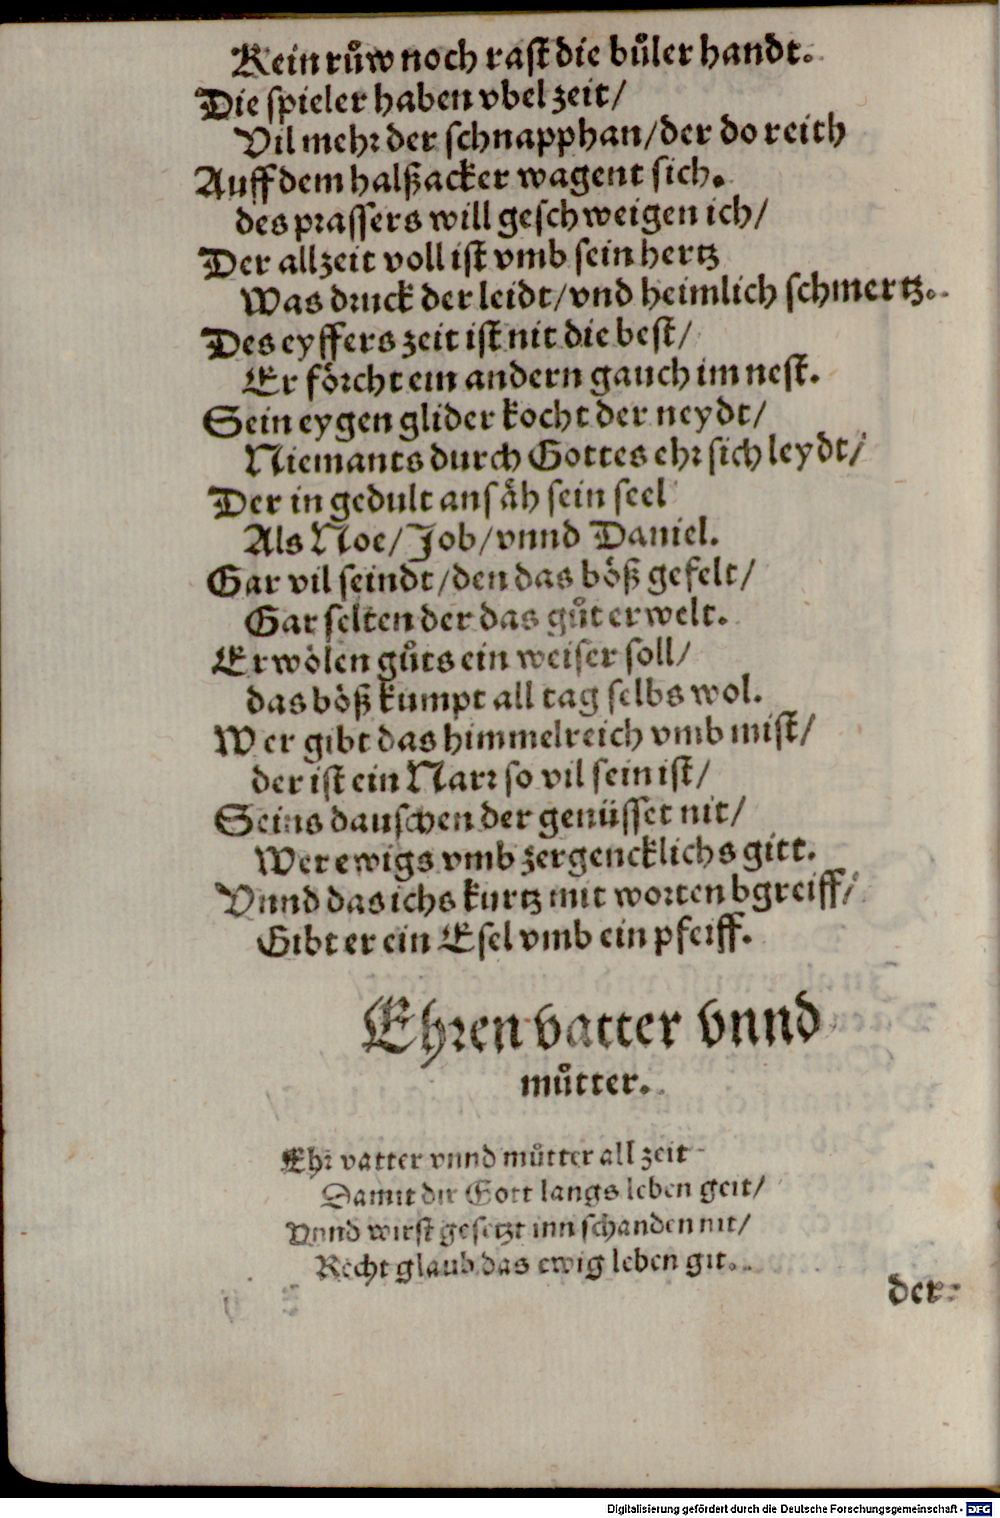 Kein růw noch rast die bůler handt.
Die spieler haben vbel zeit/
Vil mehr der schnapphan/der do reith
Auff dem halßacker wagent sich.
des prassers will geschweigen ich/
Der allzeit voll ist vmb sein hertz
Was druck der leidt/vnd heimlich schmertz.
Des eyffers zeit ist nit die best/
Er förcht ein andern gauch im nest.
Sein eygen glider kocht der neydt/
Niemants durch Gottes ehr sich leydt/
Der in gedult ansäh sein seel
Als Noe/Job/vnnd Daniel.
Gar vil seindt/den das böß gefelt/
Gar selten der das gůt erwelt.
Erwölen gůts ein weiser soll/
das böß kumpt all tag selbs wol.
Wer gibt das himmelreich vmb mist/
der ist ein Narr so vil sein ist/
Seins dauschen der genüsset nit/
Wer ewigs vmb zergencklichs gitt.
Vnnd das ichs kurtz mit worten bgreiff/
Gibt er ein Esel vmb ein pfeiff.
Ehren vatter vnnd
můtter.
Ehr vatter vnnd můtter all zeit
Damit dir Gott langs leben geit/
Vnnd wirst gesetzt inn schanden nit/
Recht glaub das ewig leben git.
der
Digitalisierung gefördert durch die Deutsche Forschungsgemeinschaft - DFG